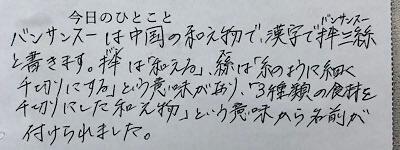 今日のひとこと
バンサンスー
バンサンスーは中国の和え物で、漢字で拌三絲
と書きます。拌は「和える」、絲は「糸のように細く
千切りにする」という意味があり、「3種類の食材を
千切りにした和え物」という意味から名前が
付けられました。